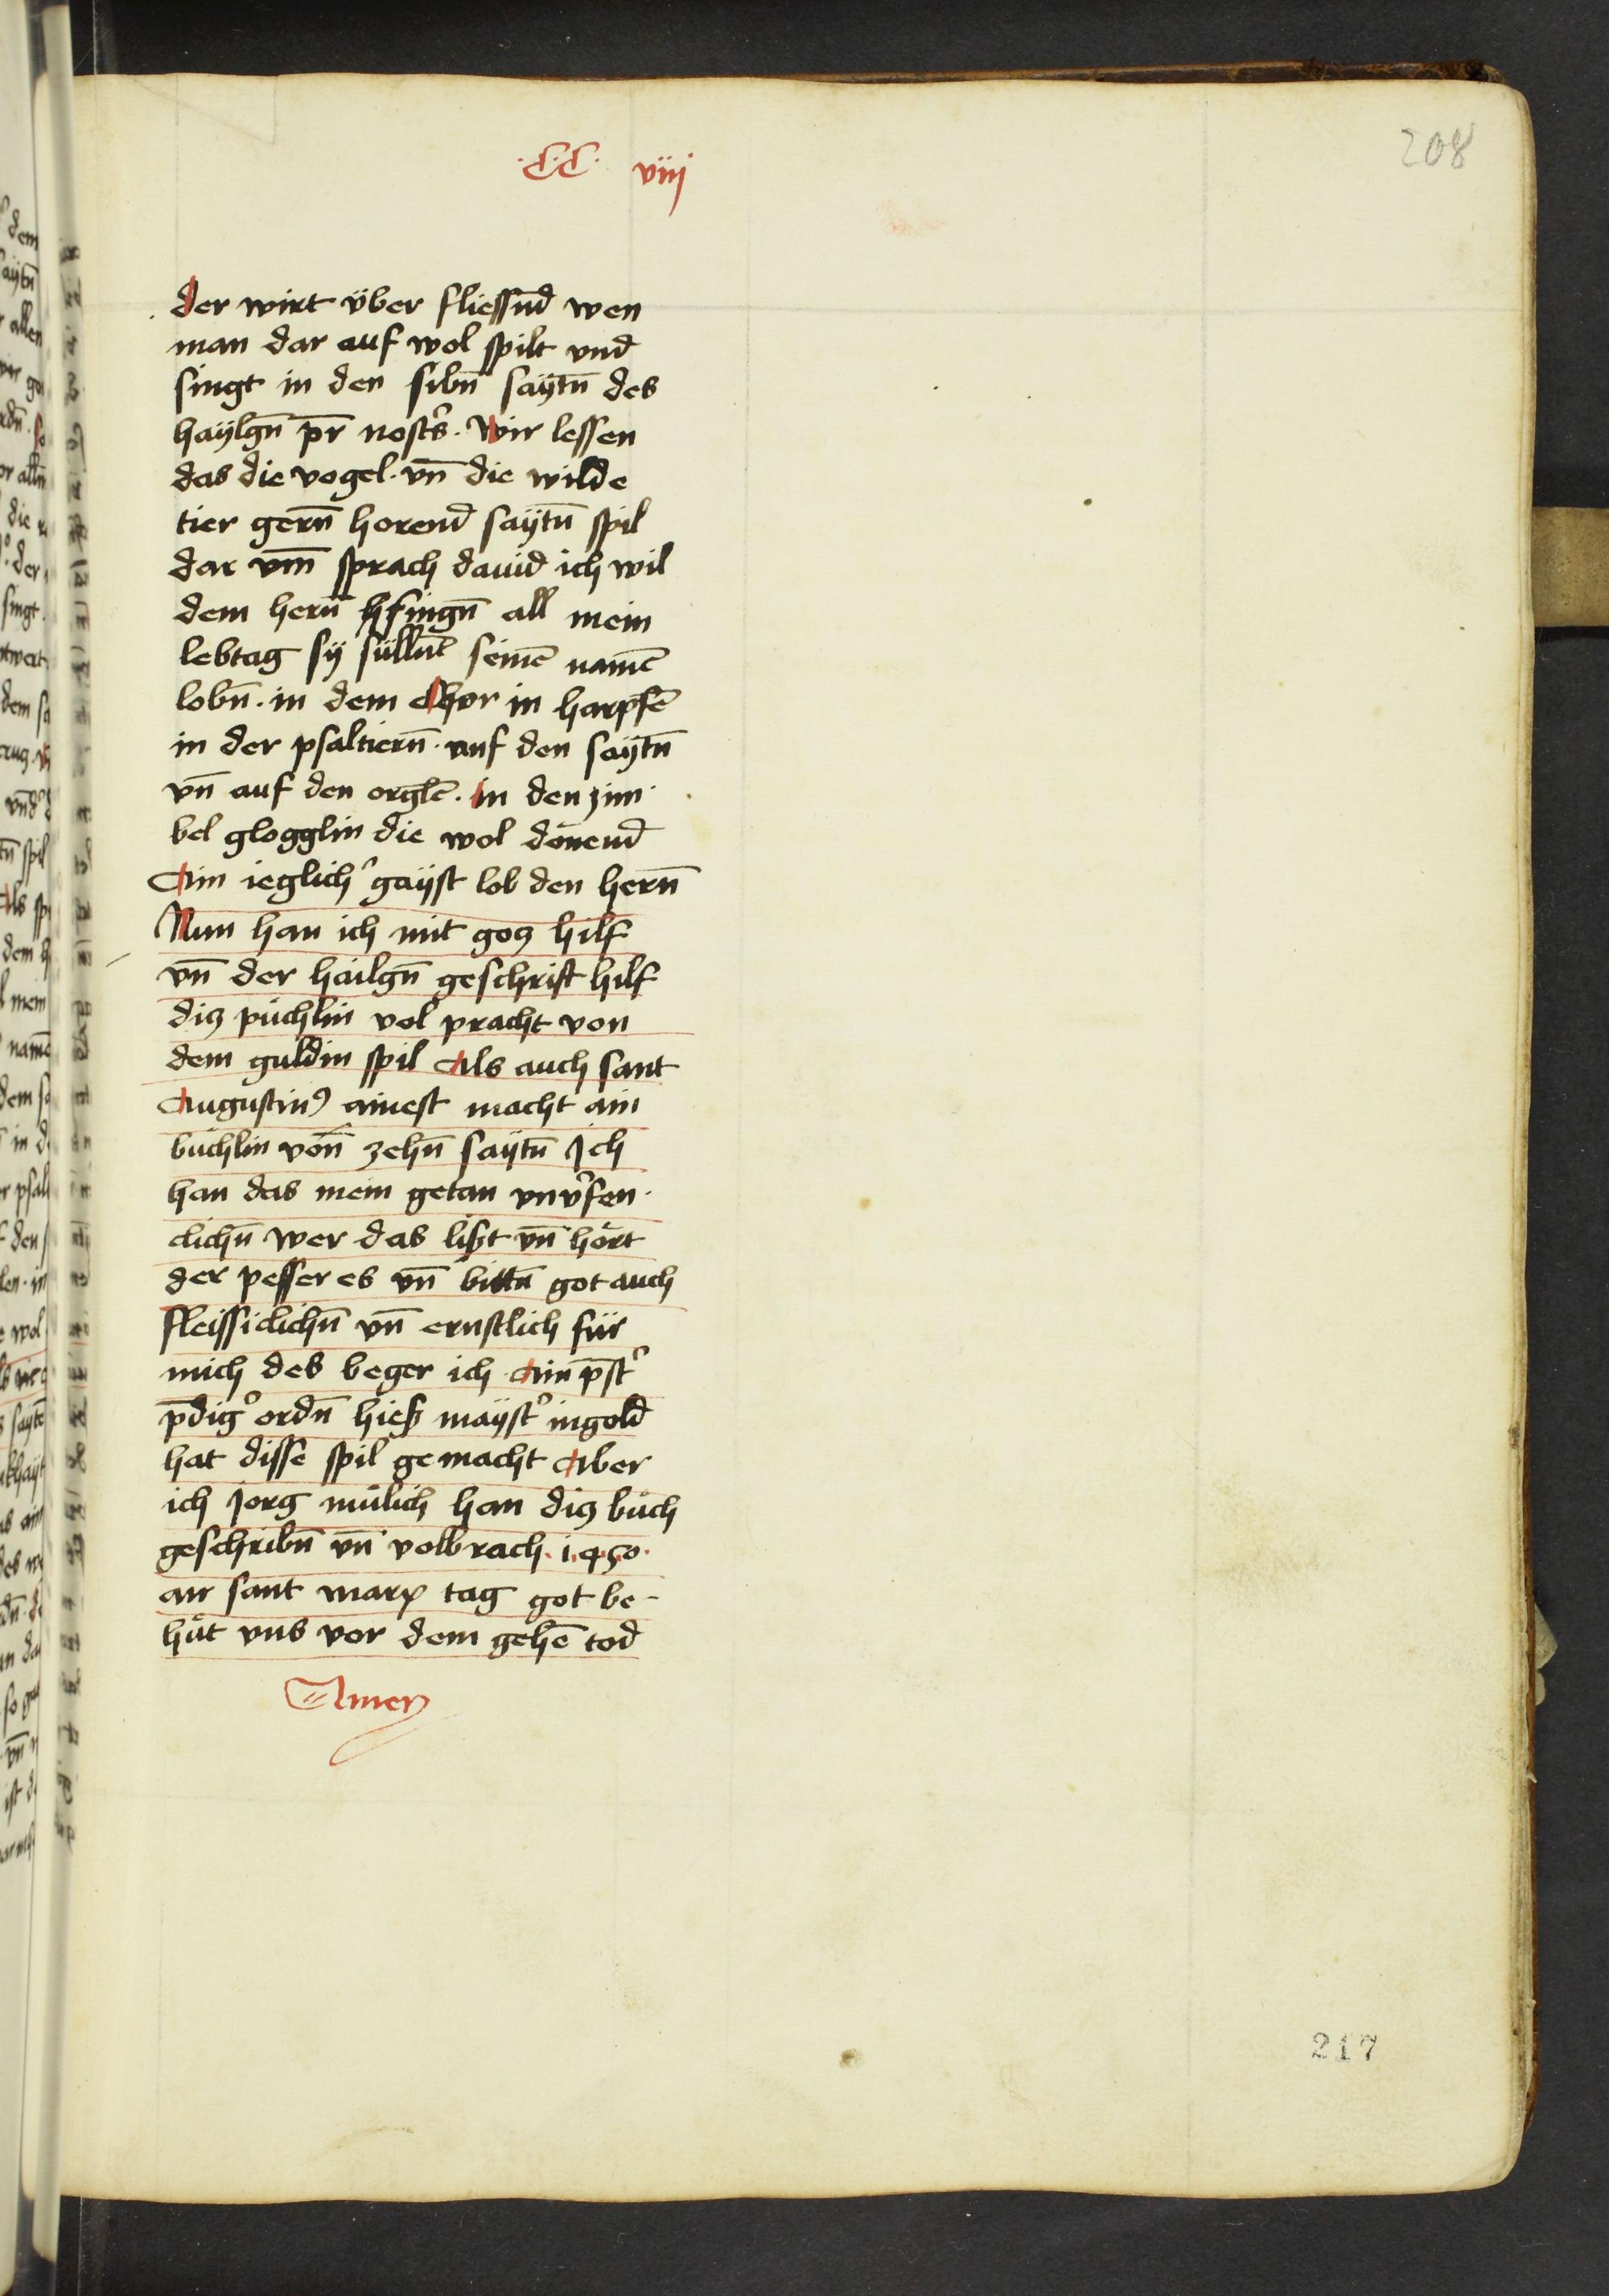 ·C·C· viij
208
der wirt über fliessnd wen
man dar auf wol spilt vnd
singt in den sibn̄ saÿtn̄ des
haÿlgn̄ pr̄ nostꝰs. Wir lessen
das die vogel. vn̄ die wilde
tier gern̄ horend saÿtn̄ spil
dar vm̄ sprach dauid ich wil
dem hern̄ singn̄ all mein
lebtag sÿ süllnt seinē namē
lobn̄. in dem Chor in harpfē
in der psaltiern̄. auf den saÿtn̄
vn̄ auf den orglē. In den zim
bel glogglin die wol dönend
Ain ieglich' gaÿst lob den hern̄
Nun han ich mit goz hilf
vn̄ der hailgn̄ geschrift hilf
diz püchlin vol pracht von
dem guldin spil Als auch sant
Augustinꝰ ainest macht ain
büchlin von̄ zehn̄ saÿtn̄ Ich
han das mein getan vnv'fen
clichn̄ wer das lißt vn̄ hört
der pesser es vn̄ bittn̄ got auch
fleissiclichn̄ vn̄ ernstlich für
mich des beger ich Ain p̄st'
p̄dig' ordn̄ hieß maÿst' ingold
hat disse spil gemacht Aber
ich Jorg mülich han diz büch
geschribn̄ vn̄ volbrach. 1.4.50.
an sant marx tag got be-
hüt vns vor dem gehē tod
Amen
217